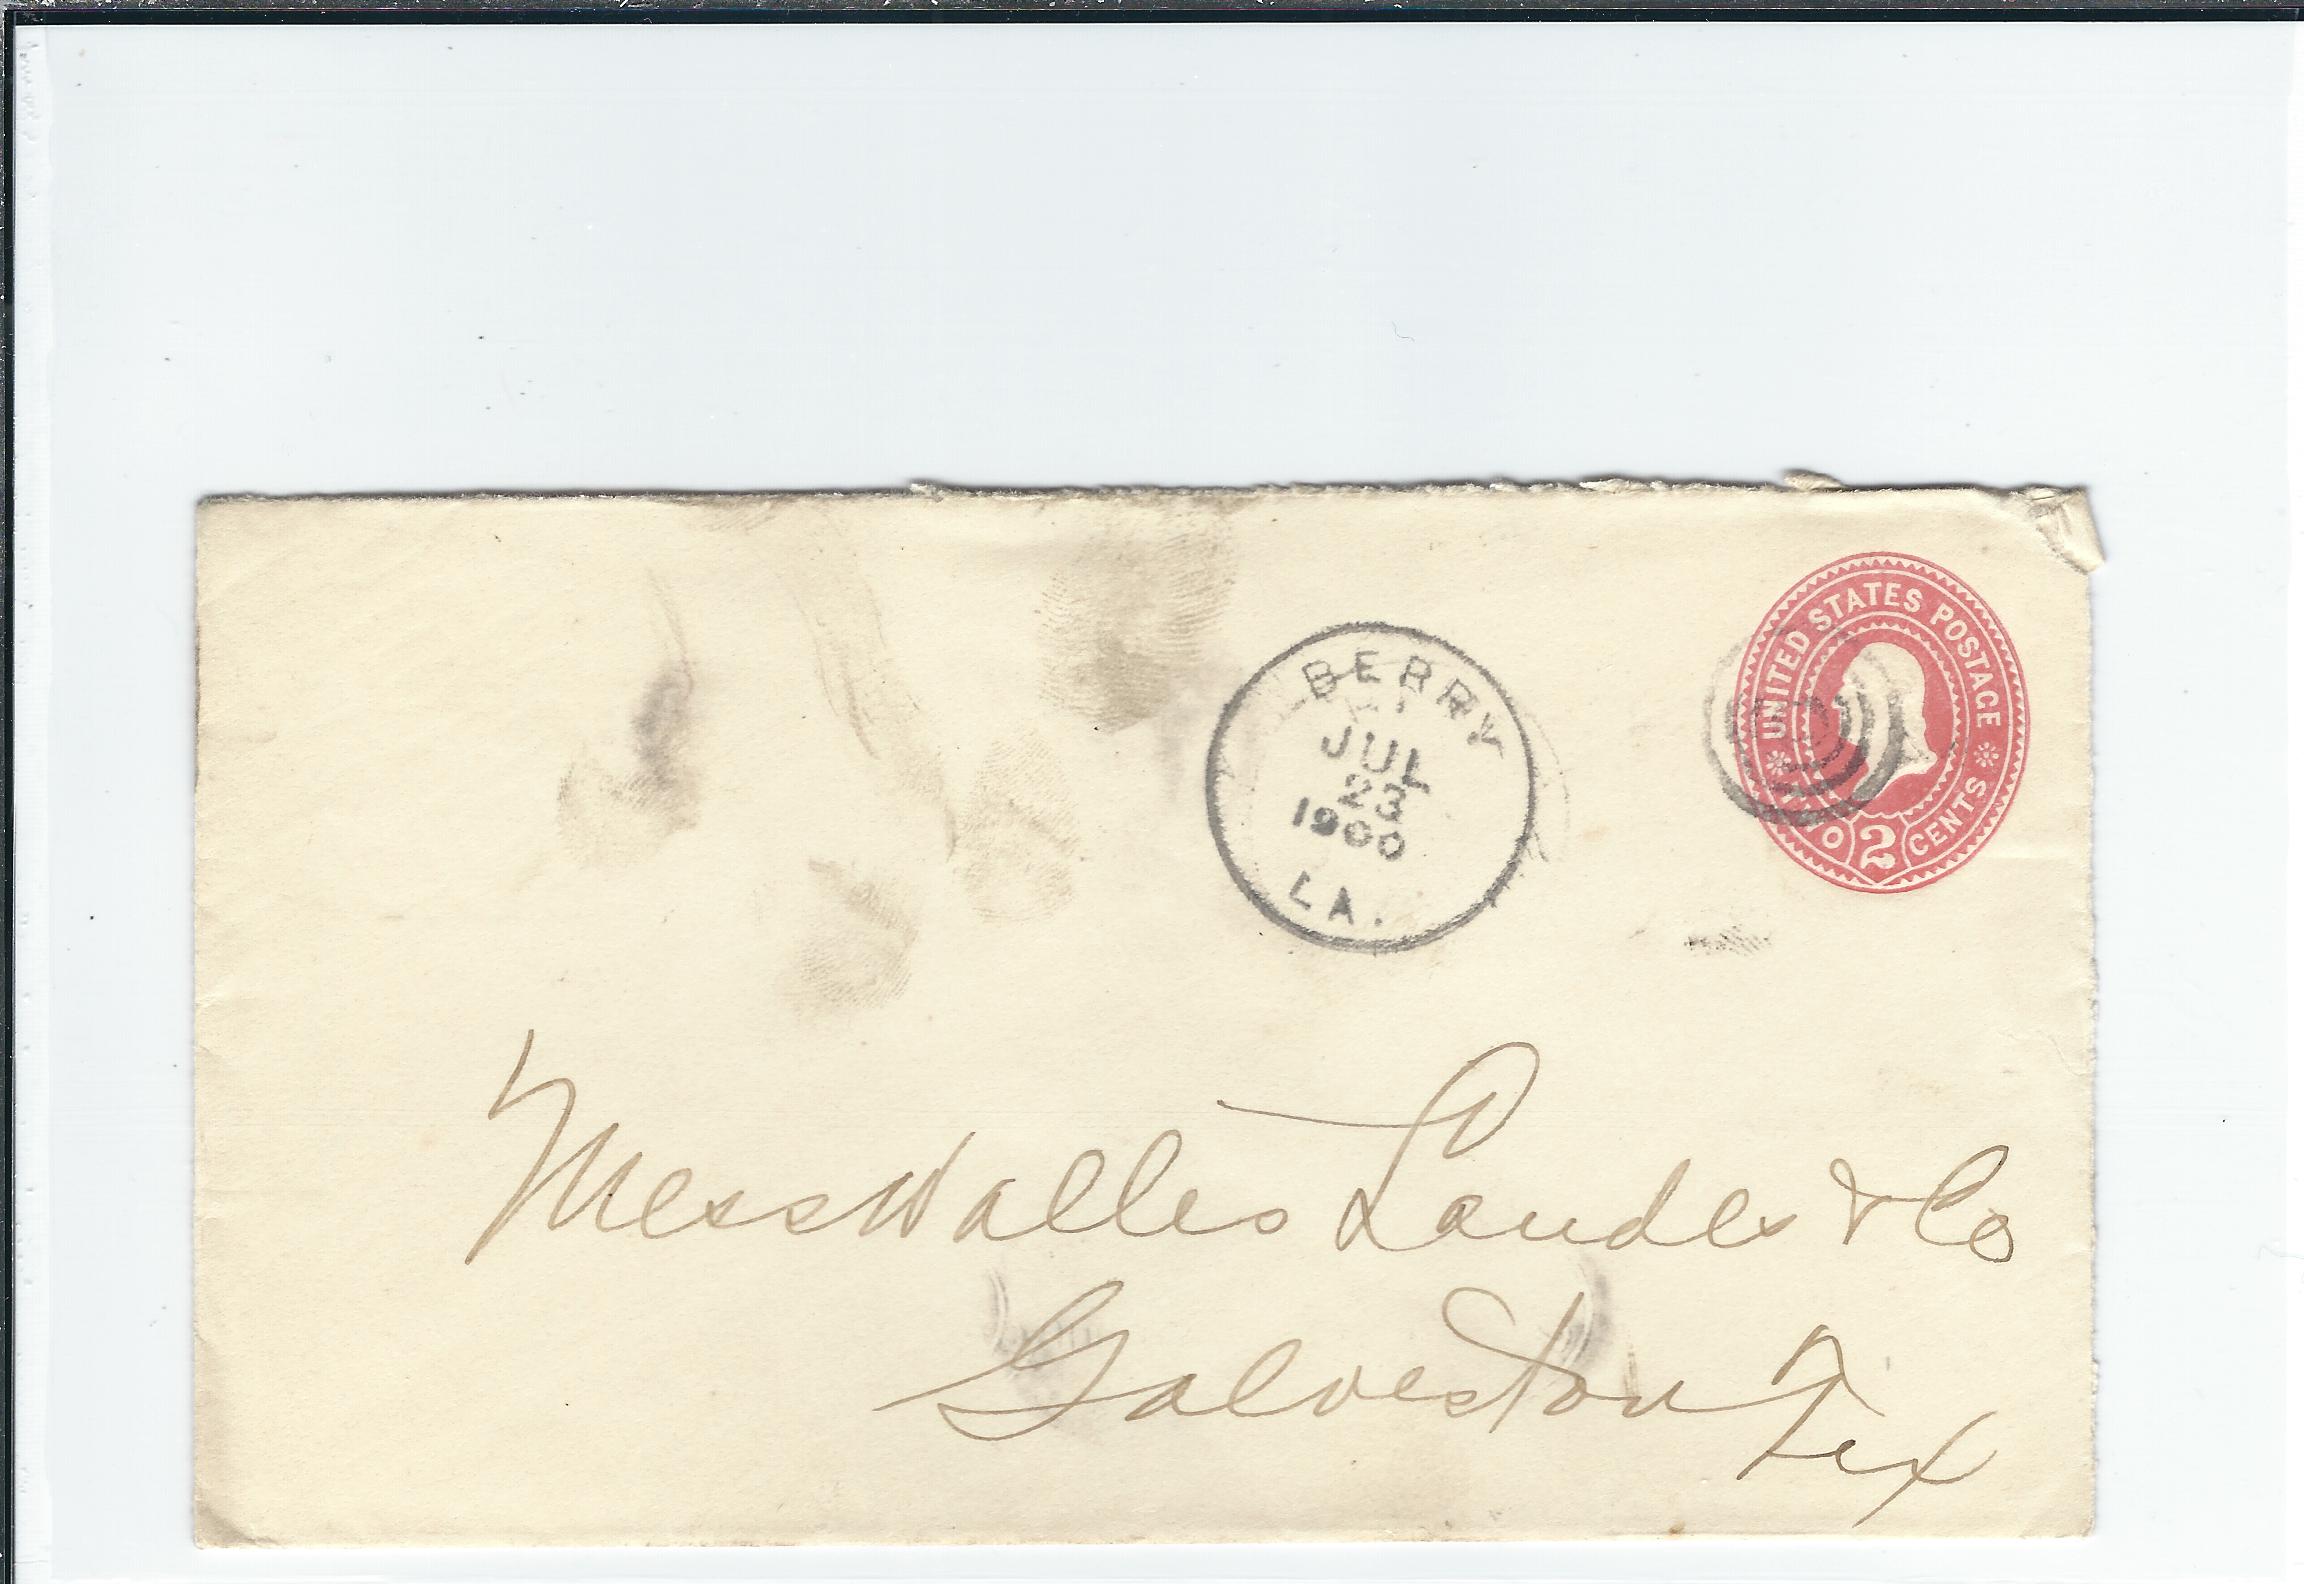 BERRY
JUL
23
1900
LA.
UNITED STATES POSTAGE
TWO 2 CENTS
Mess Wallis Landes & Co
Galveston Tex